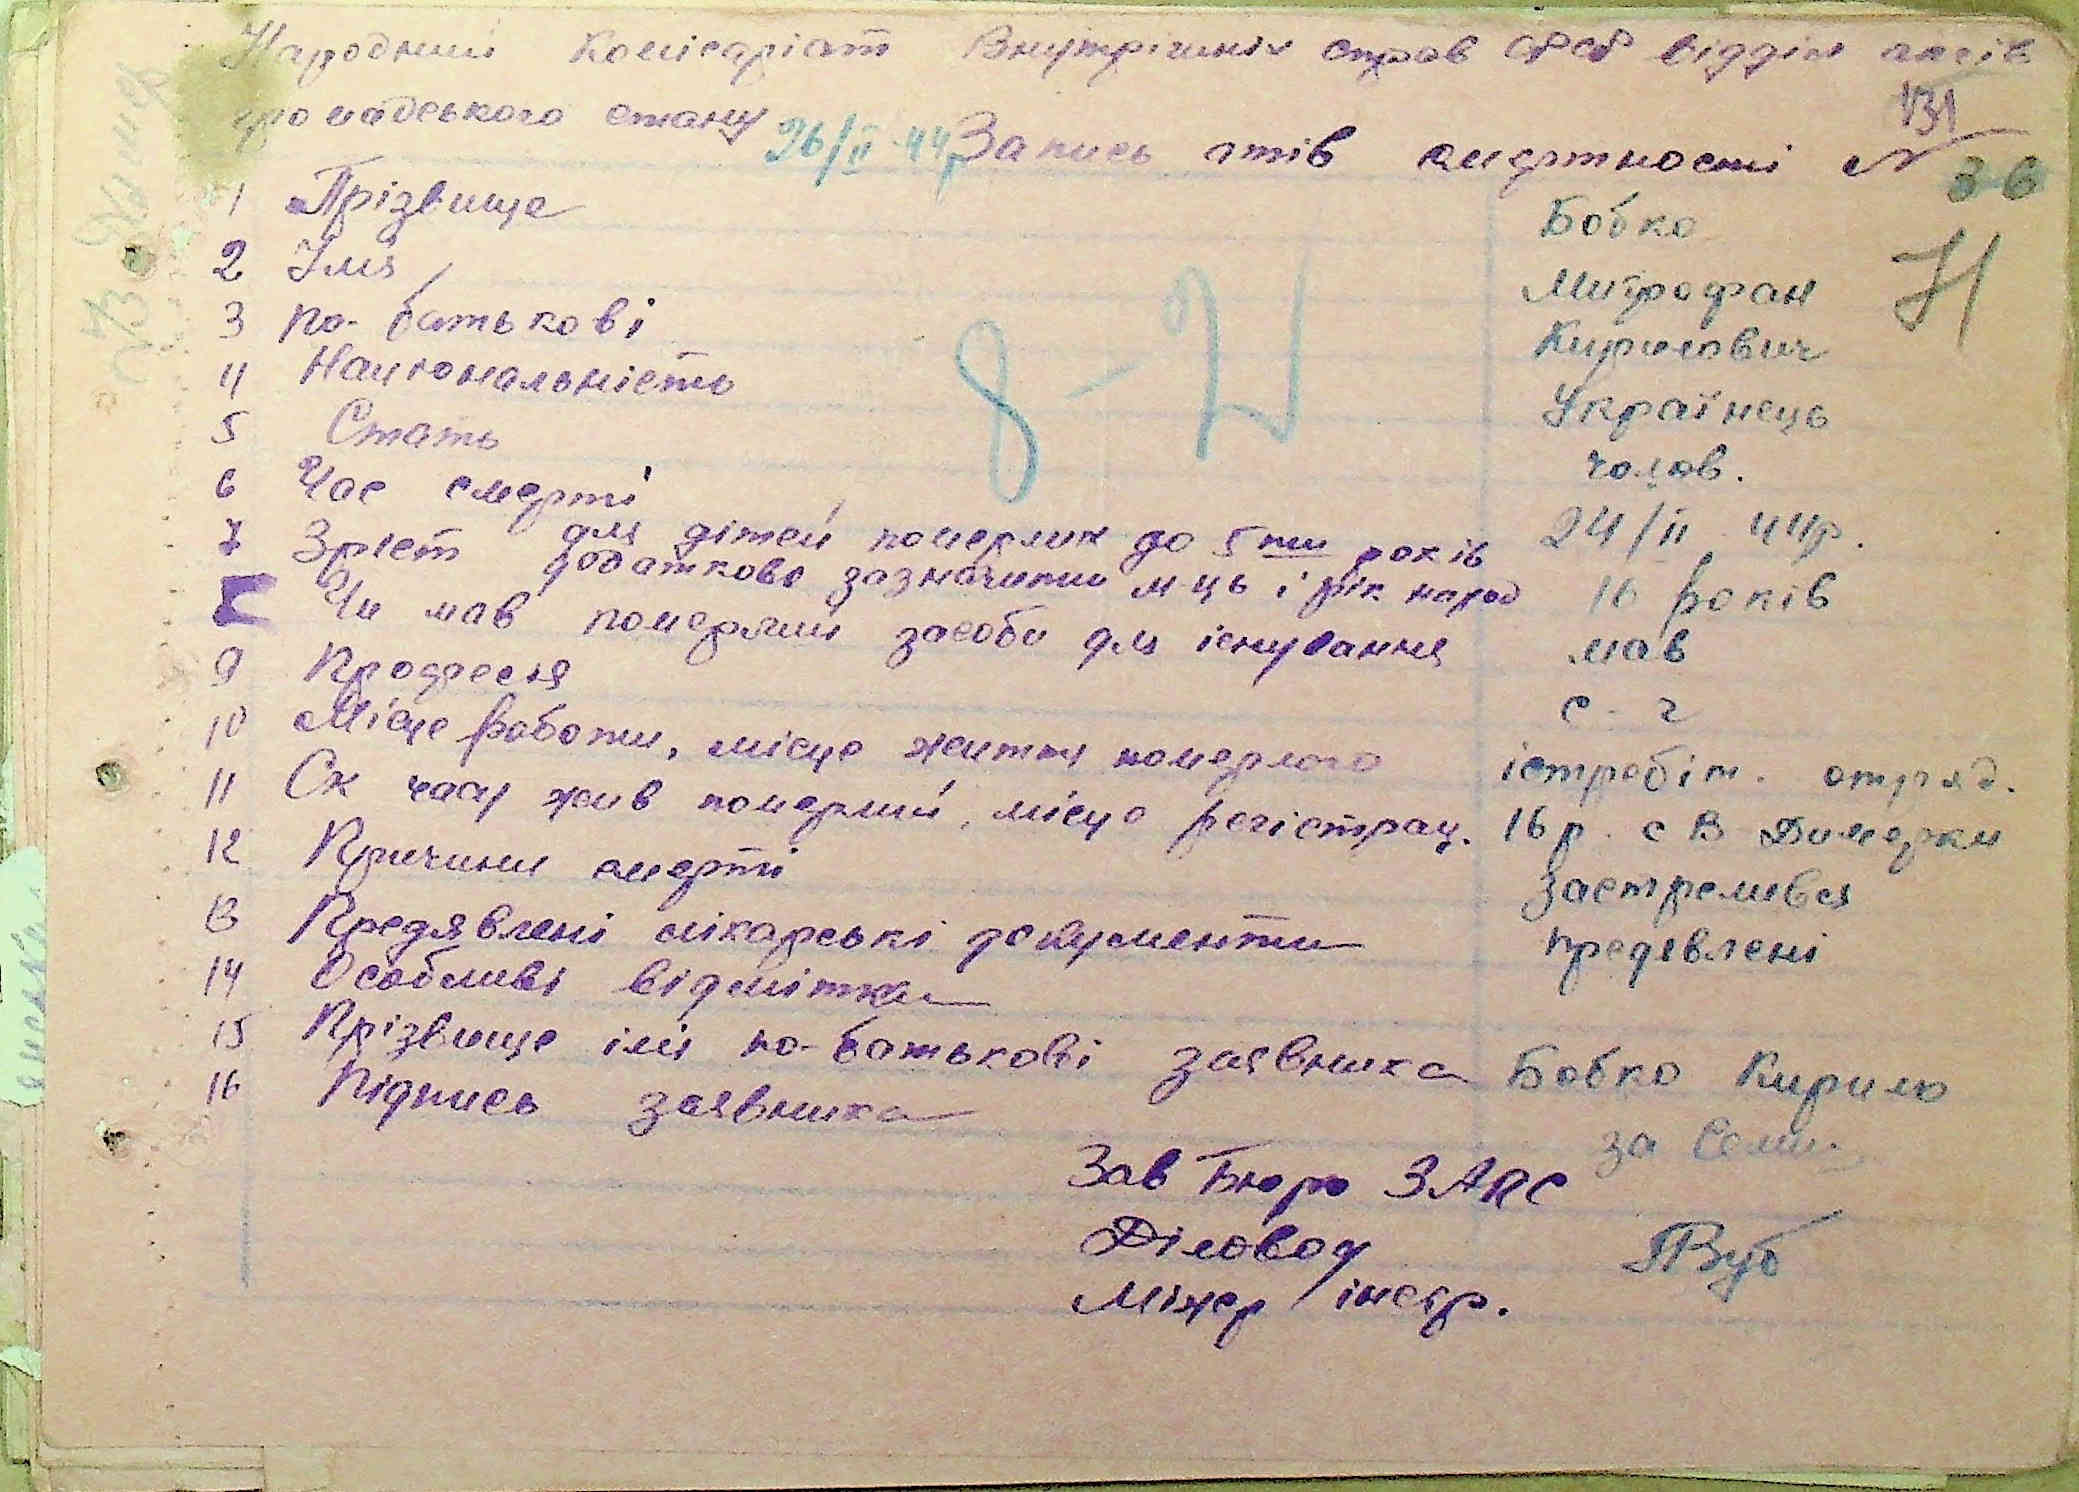 Народний Комісаріат Внутрішніх справ СРСР відділ актів
131
громадського стану 26/II-44р Запись актів смертності № 36
1 Прізвище Бобко
Н
2 Імя Митрофан
3 по-батькові Кирилович
4 Національність Українець
8-
5 Стать чолов.
6 Час смерті 24/II 44р.
7 Зріст для дітей померлих до 5ти років
додатково зазначити м-ць і рік народ 16 років
Чи мав померлий засоби для існування мав
9 Професія с-г
10 Місце роботи, місце життя померлого істребіт. отряд.
11 Ск часу жив померлий, місце регістрац. 16р. с В Димерки
12 Причини смерті Застреливсь
13 Предявлені лікарські документи предявлені
14 Особливі відмітки
15 Прізвище імя по-батькові заявника Бобко Кирило
16 Підпись заявника за
Зав Бюро ЗАГС
Діловод